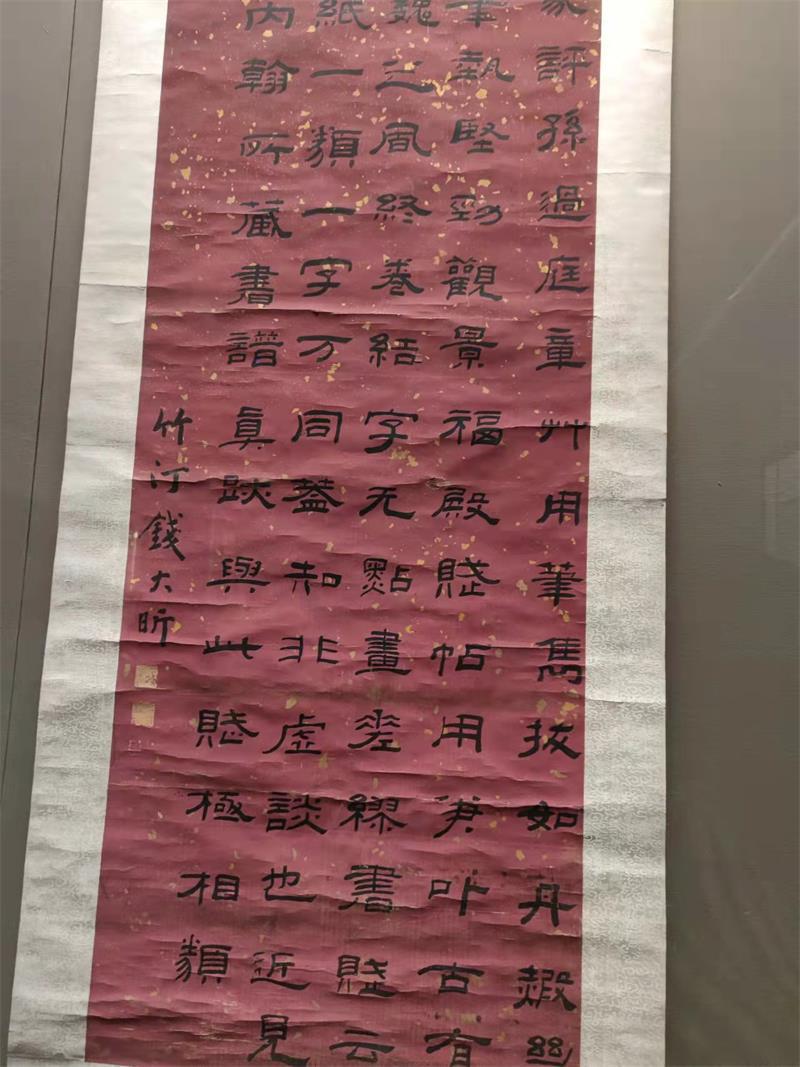 家評孫過庭章艸用筆雋拔如丹
筆執堅勁觀景福殿賦帖用叶古有
魏之風終卷結字无點畫差繆書賦云
紙一類一字万同蓋知非虛談也近見
内翰所藏書譜眞跡與此賦極相類
竹汀錢大昕